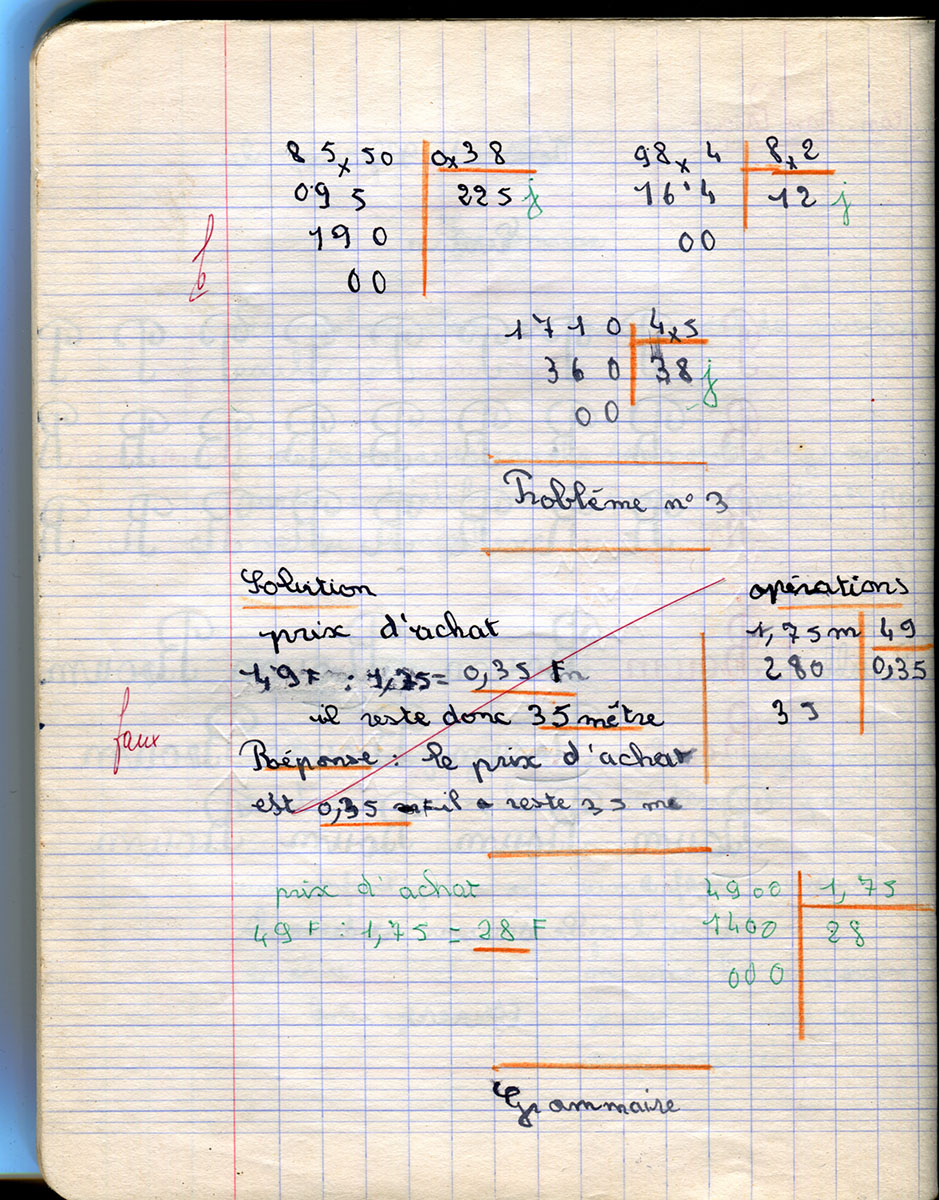 85,50 0,38
095 225 j
190
00
98,4 8,2
16.4 12 j
00
b
1710 4,5
360 38 j
00
Problème n° 3
Solution
prix d'achat
49F : 1,75 = 0,35 F
il reste donc 35 mêtre
Réponse : le prix d'achat
est 0,35 F il reste 35 me
opérations
1,75m 49
280 0,35
35
faux
prix d'achat
49 F : 1,75 = 28 F
4900 1,75
1400 28
000
Grammaire